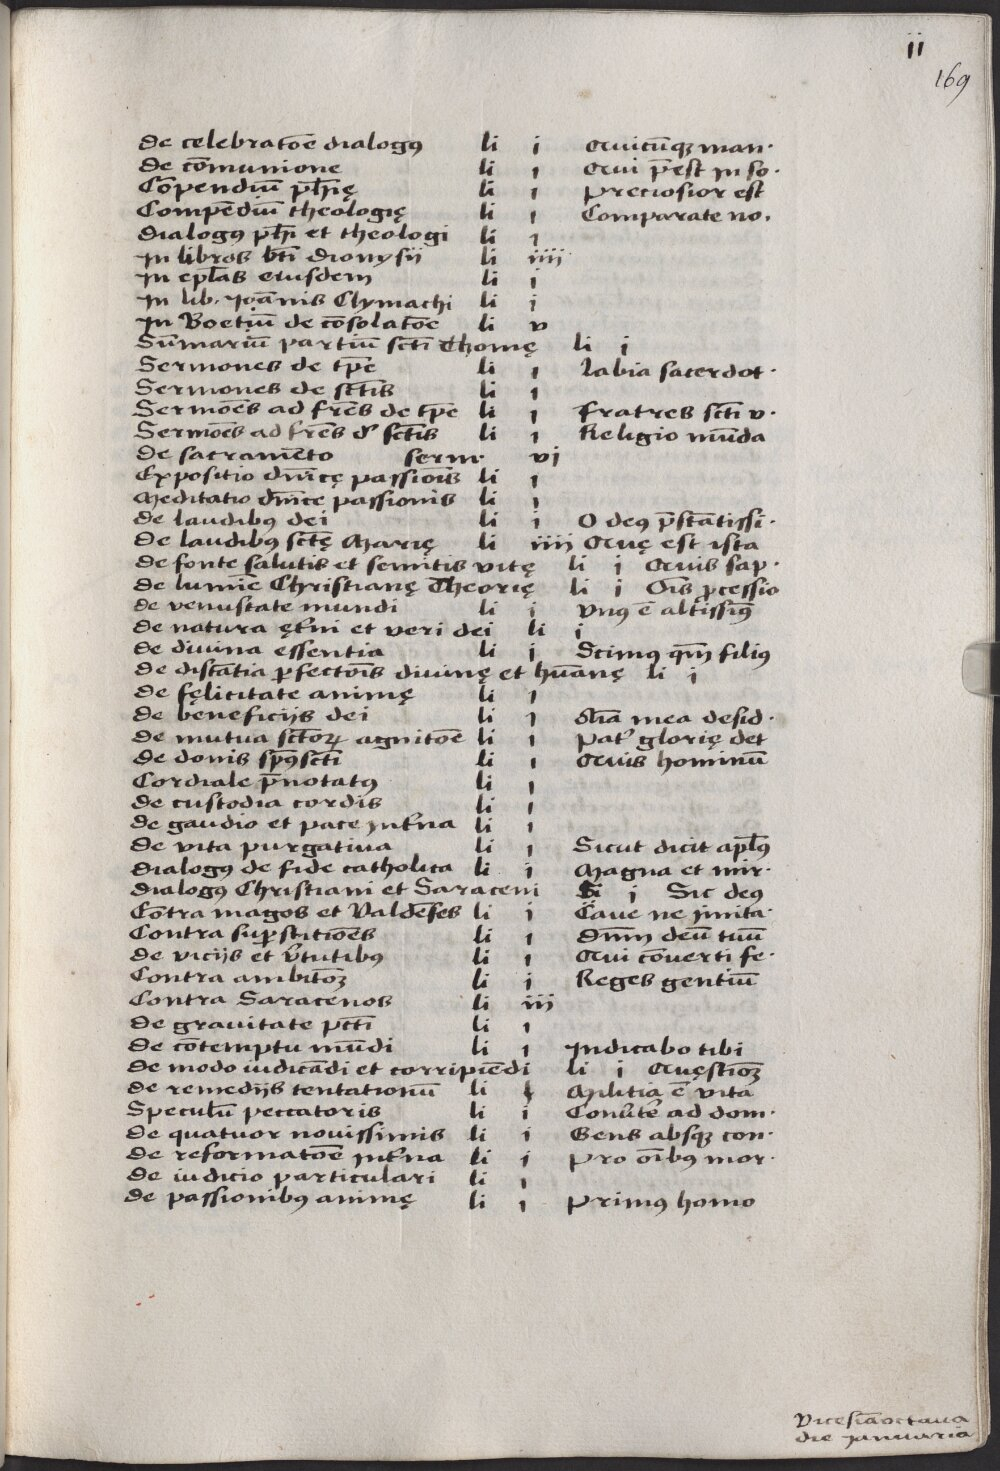 ii
169
De celebratōe dialogꝰ li i Quicūqꝫ man·
De cōmunione li i Qui p̄est in so·
Cōpendiū ph̄ię li i Preciosior est
Compēdiū theologię li i Comparate no.
Dialogꝰ ph̄i et theologi li i
In libros bt̄i Dionysii li iiii
In ep̄las eiusdem li i
In lib. Ioānis Clymachi li i
In Boetiū de cōsolatōe li v
Sūmariū partiū sct̄i Thomę li i
Sermones de tp̄e li i Labia sacerdot·
Sermones de sct̄is li i
Sermōes ad fr̄es de tp̄e li i Fratres sct̄i v·
Sermōes ad fr̄es d' sct̄is li i Religio mūda
De sacramēto serm· vi
Expositio dn̄icę passiōis li i
Meditatio dn̄ice passionis li i
De laudibꝰ dei li i O deꝰ p̄stātissi·
De laudibꝰ sct̄ę Marię li iiii Quę est ista
De fonte salutis et semitis vitę li i Quis sap·
De lumīe Christianę Theorię li i Oīs ꝓcessio
De venustate mundi li i Vnꝰ ē altissimꝰ
De natura ęt̄ni et veri dei li i
De divina essentia li i Scimꝰ qm̄ filiꝰ
De distātia ꝑfectōis divinę et hūanę li i
De fęlicitate animę li i
De beneficijs dei li i Aīa mea desid·
De mutua sct̄oꝝ agnitōe li i Pat' glorię det
De donis sp̄ꝰsct̄i li i Quis hominū
Cordiale p̄notatꝰ li i
De custodia cordis li i
De gaudio et pace int̄na li i
De vita purgativa li i Sicut dicit apl̄ꝰ
Dialogꝰ de fide catholica li i Magna et mir·
Dialogꝰ Christiani et Saraceni li i Sic deꝰ
Cōtra magos et Valdēses li i Cave ne imita·
Contra suꝑstitiōes li i Dn̄m deū tuū
De vicijs et v̄tutibꝰ li i Qui cōverti fe·
Contra ambitōꝫ li i Reges gentiū
Contra Saracenos li iii
De gravitate pct̄i li i
De cōtemptu mūdi li i Indicabo tibi
De modo iudicādi et corripiēdi li i Quęstiōꝫ
De remedijs tentationū li i Militia ē vita
Speculū peccatoris li i Conv̄te ad dom·
De quatuor novissimis li i Gens absqꝫ con·
De reformatōe int̄na li i Pro oībꝰ mor·
De iudicio particulari li i
De passionibꝰ animę li i Primꝰ homo
Vicesīaoctava
die Ianuaria